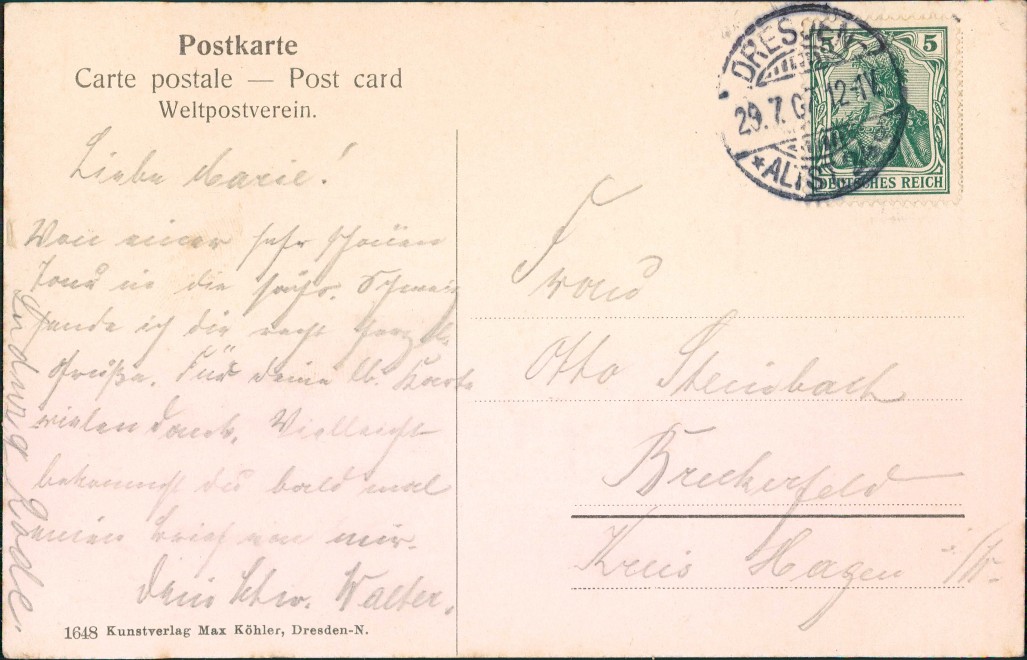 Postkarte
Carte postale — Post card
Weltpostverein.
DRESDEN
29.7.07 12-1V.
*ALTST.
5 5
DEUTSCHES REICH
Liebe Marie!
Von einer sehr schönen
Tour in die sächs. Schweiz
sende ich dir recht herzl.
Grüße. Für deine lb. Karte
vielen Dank. Vielleicht
bekommst du bald mal
einen Brief von mir.
Dein Schw. Walter.
Ludwig Rode.
Frau
Otto Steinbach
Breckerfeld
Kreis Hagen i/W.
1648 Kunstverlag Max Köhler, Dresden-N.